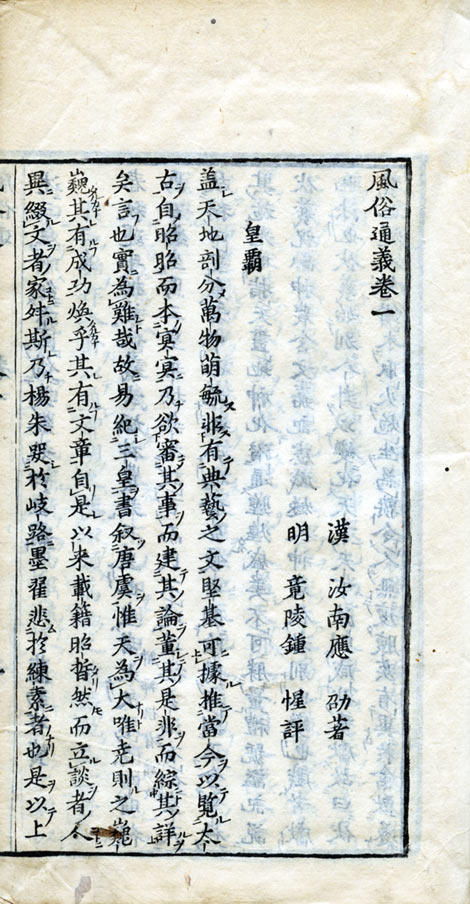 風俗通義卷一
漢 汝南應 劭著
明 竟陵鍾 惺評
皇霸
盖天地剖分萬物萌毓非有典藝之文堅基可據推當今以覽太
古自昭昭而本冥冥乃欲審其事而建其論董其是非而綜其詳
矣言也實為難哉故易紀三皇書叙唐虞惟天為大唯尭則之巍
巍其有成功煥乎其有文章自是以來載籍昭晳然而立談者人
異綴文者家舛斯乃楊朱哭於岐路墨翟悲於練素者也是以上